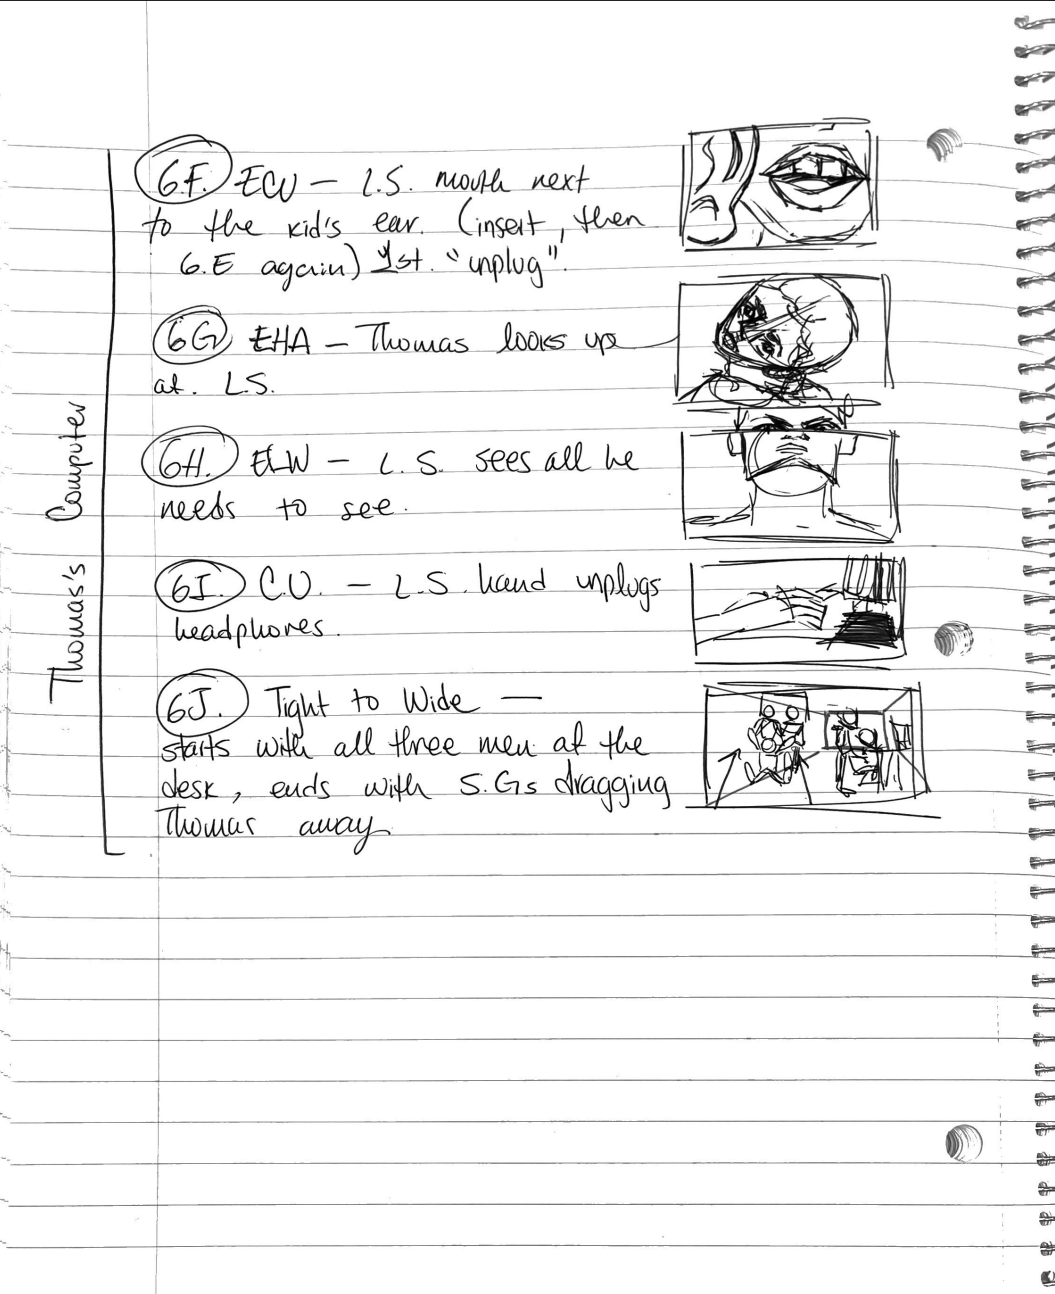 Thomas's Computer
6.F. ECU — L.S. mouth next
to the kid's ear. (insert, then
6.E again) 1st. "unplug".
6G EHA — Thomas looks up
at. L.S.
6H. ELW — L.S. sees all he
needs to see.
6I. C.U. — L.S. hand unplugs
headphones.
6J. Tight to Wide —
starts with all three men at the
desk, ends with S.Gs dragging
Thomas away